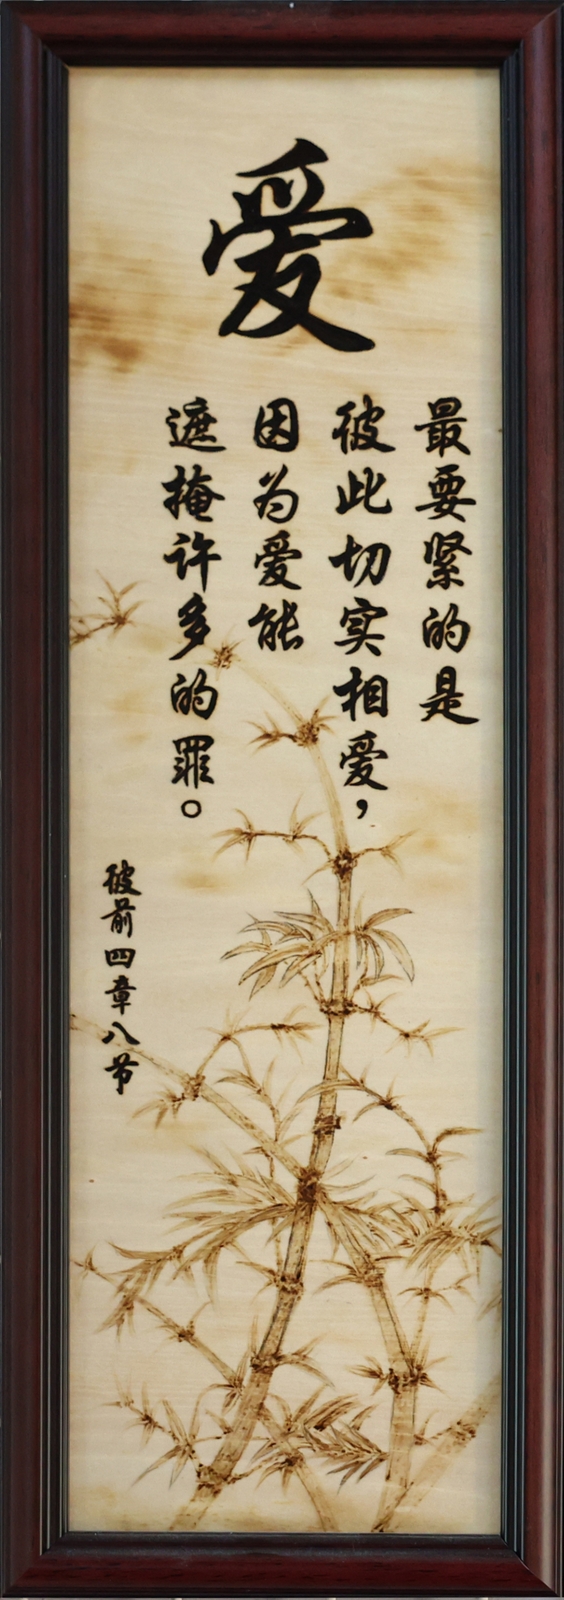 爱
最要紧的是
彼此切实相爱，
因为爱能
遮掩许多的罪。
彼前四章八节